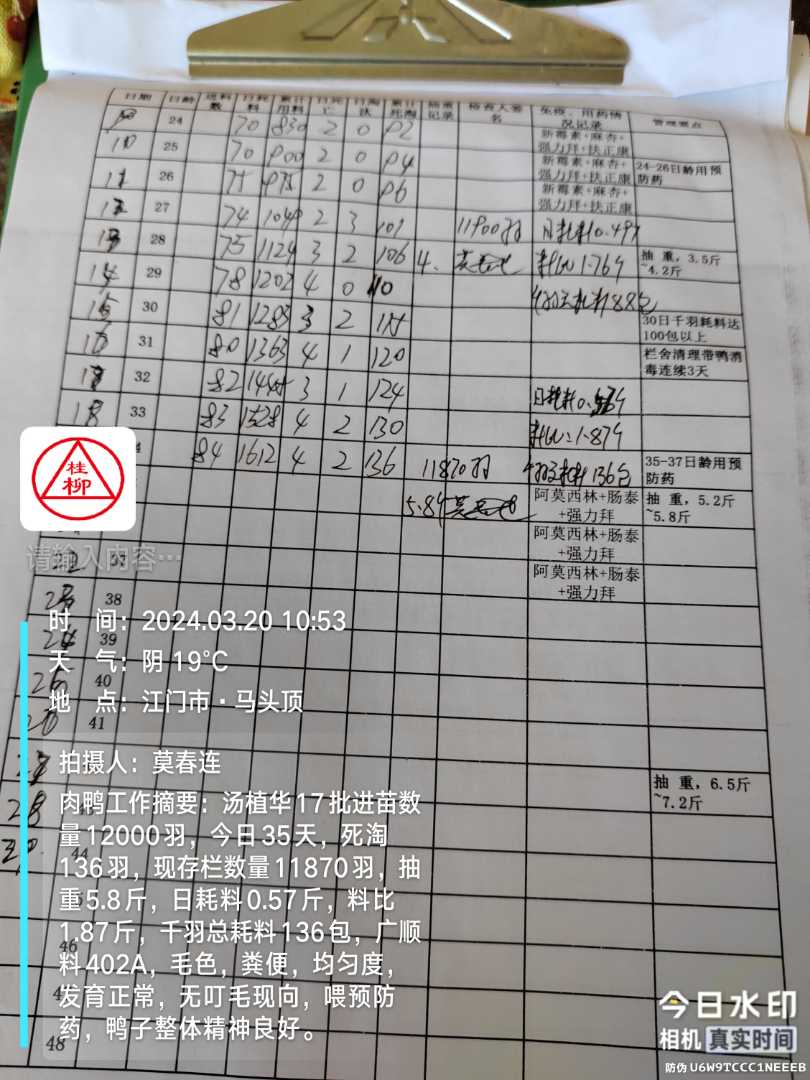 日期 日龄 进料数 日耗料 累计用料 日死亡 日淘汰 累计死淘 抽重记录 检查人签名 免疫、用药情况记录 管理要点
24 70 830 2 0 92 新霉素+麻杏+强力拜+扶正康
10 25 70 900 2 0 94 新霉素+麻杏+强力拜+扶正康 24-26日龄用预防药
11 26 75 975 2 0 96 新霉素+麻杏+强力拜+扶正康
12 27 74 1049 2 3 101 11900羽 日耗料0.49斤
13 28 75 1124 3 2 106 4. 料比1.76斤 抽重，3.5斤~4.2斤
14 29 78 1202 4 0 110
15 30 81 1283 3 2 115 30日千羽耗料达100包以上
16 31 80 1363 4 1 120 栏舍清理带鸭消毒连续3天
17 32 82 1445 3 1 124
18 33 83 1528 4 2 130 料比:1.87斤
84 1612 4 2 136 11870羽 千羽总耗料136包 35-37日龄用预防药
5.8斤 莫春连 阿莫西林+肠泰+强力拜 抽重，5.2斤~5.8斤
阿莫西林+肠泰+强力拜
22 37 阿莫西林+肠泰+强力拜
23 38
24 39
40
41
抽重，6.5斤~7.2斤
28
44
46
48
桂柳
请输入内容…
时 间：2024.03.20 10:53
天 气：阴 19℃
地 点：江门市·马头顶
拍摄人：莫春连
肉鸭工作摘要：汤植华17批进苗数
量12000羽，今日35天，死淘
136羽，现存栏数量11870羽，抽
重5.8斤，日耗料0.57斤，料比
1.87斤，千羽总耗料136包，广顺
料402A，毛色，粪便，均匀度，
发育正常，无叮毛现向，喂预防
药，鸭子整体精神良好。
今日水印
相机 真实时间
防伪 U6W9TCCC1NEEEB